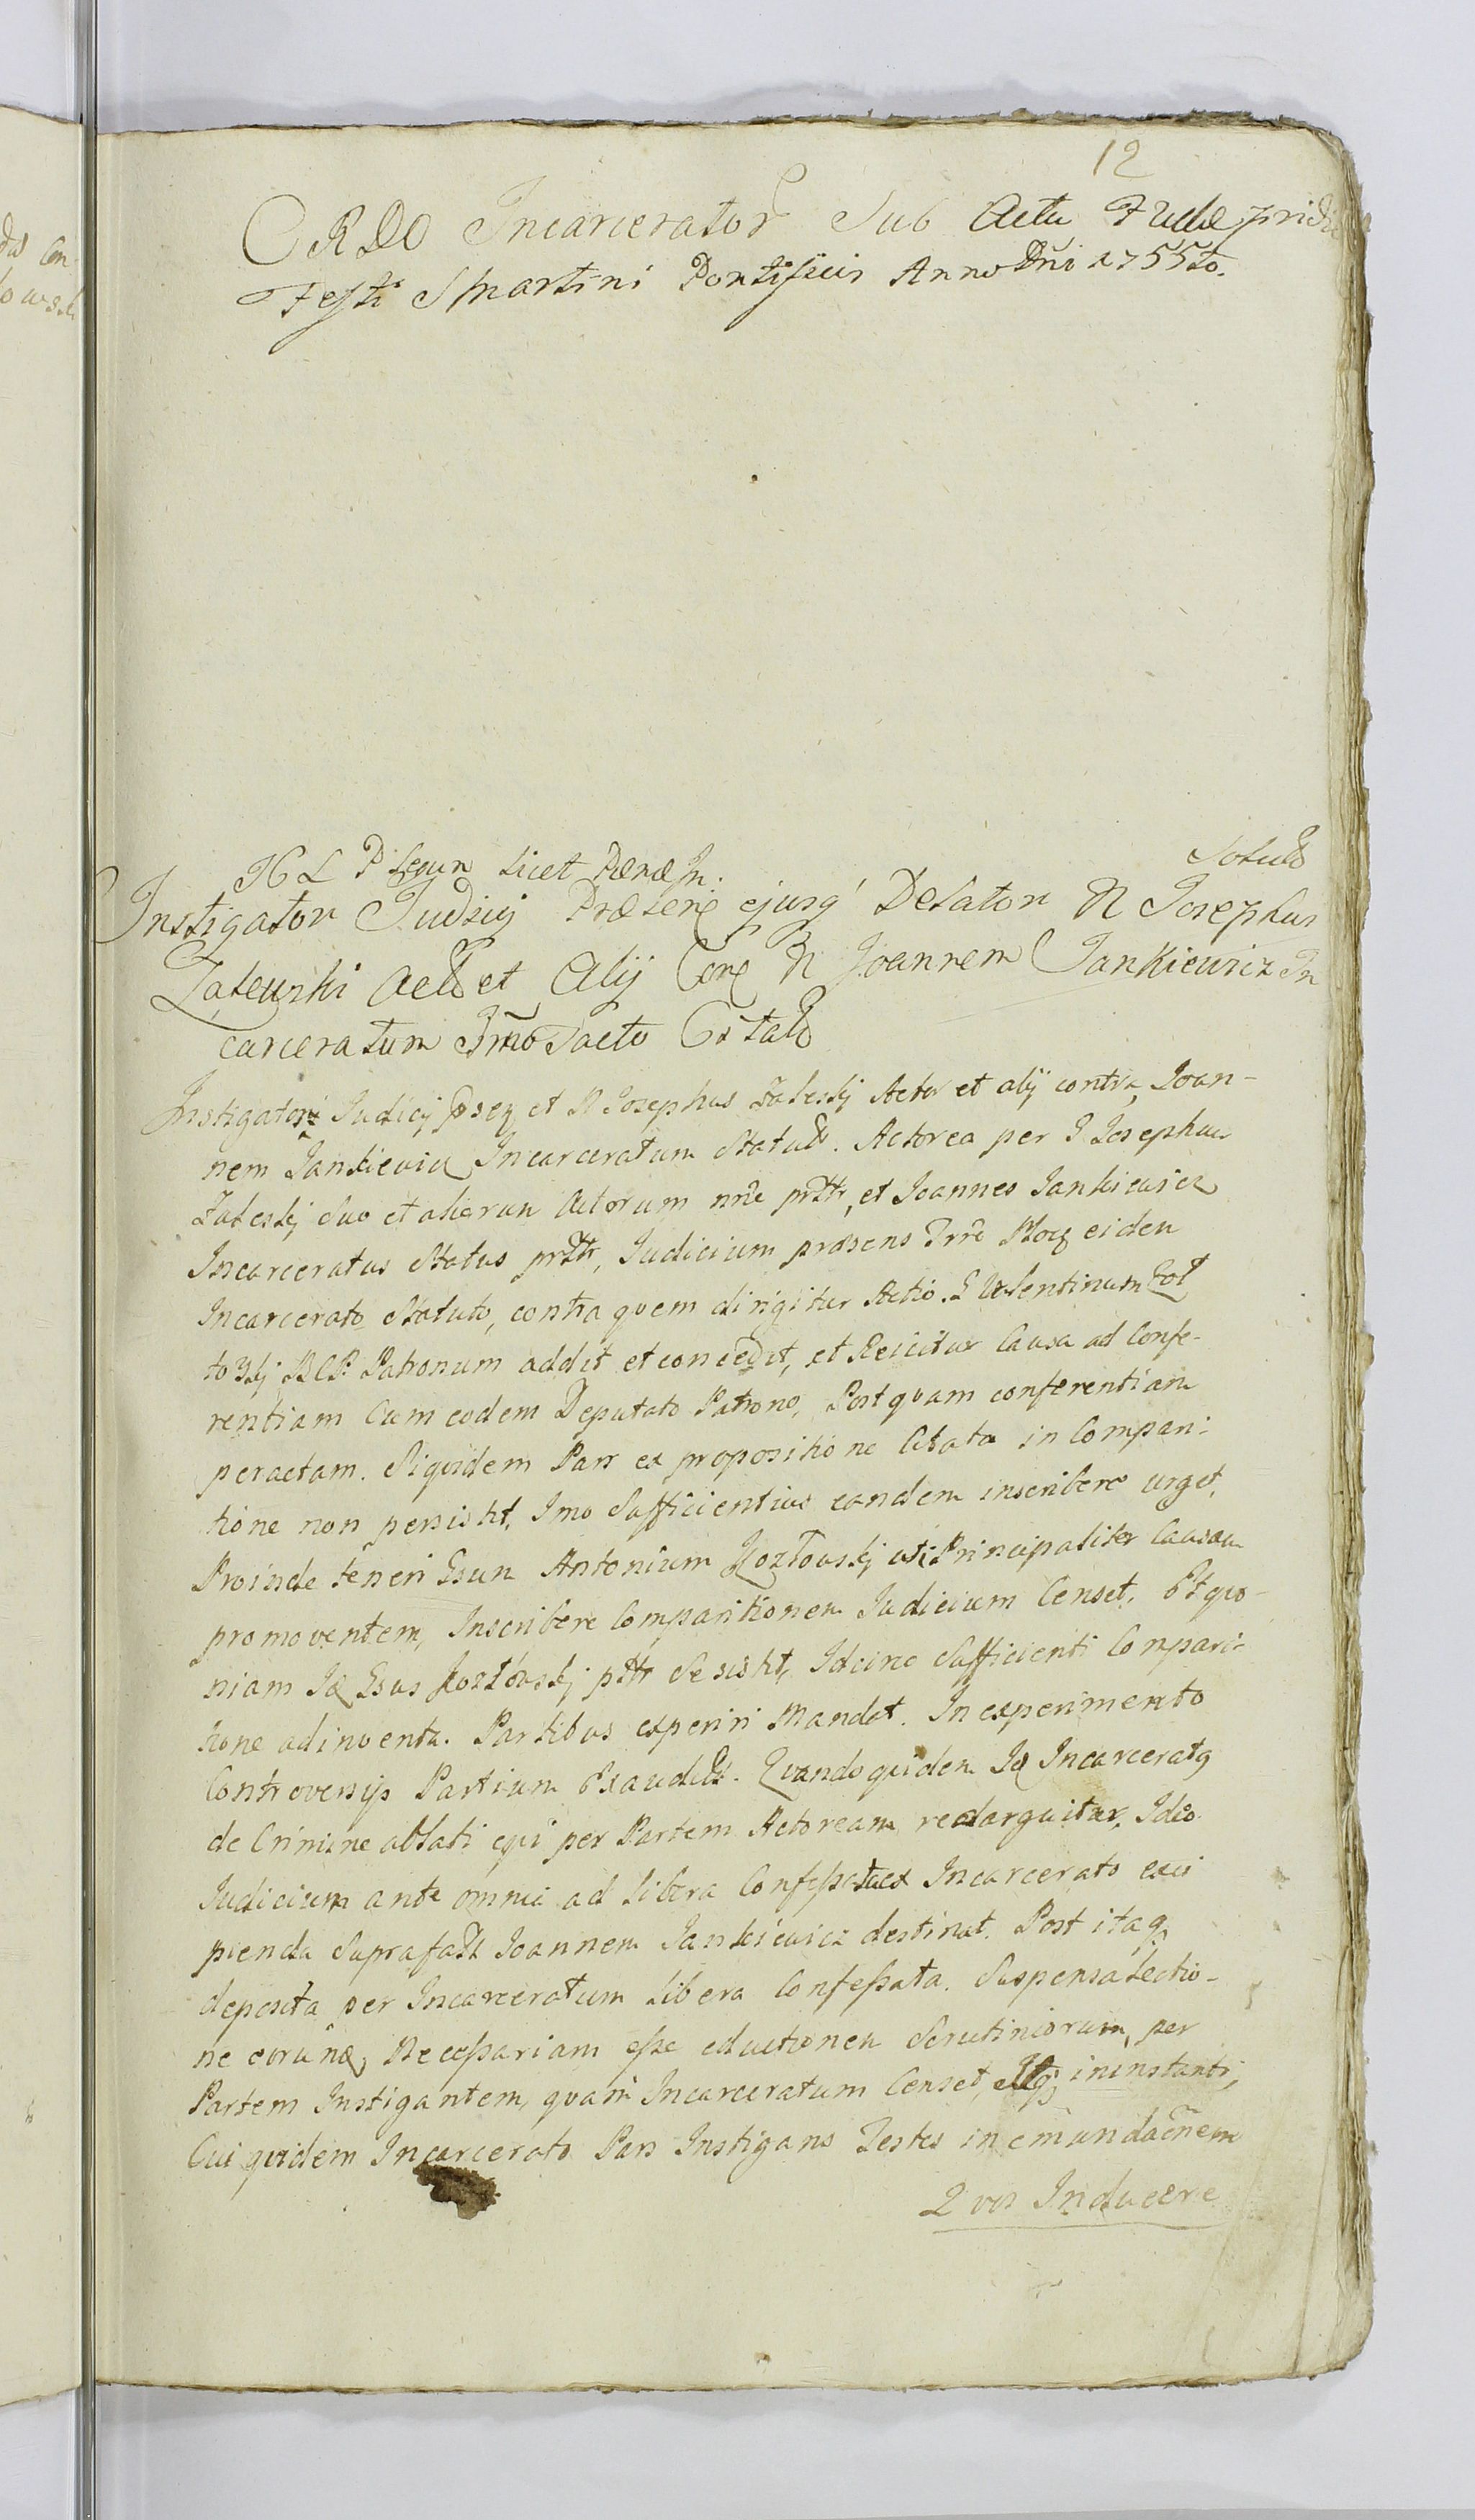 12
ORDO Incarcerator Sub Actu Feriae pridie
Festi S Martini Pontificis Anno Dni 1755to.
H L P Legum licet Paenae In.
Solutd
Instigator Judicij Praesens ejusq Delator N Josephus
Zalewski Act et Alij Cone N Joannem Jankiewicz In
carceratum Imo Pacto Citatd
Instigator Judicij psez et N Josephus Zaleskj Actor et alij contra Joan-
nem Jankiewicz Incarceratum Statutd. Actorea per G Josephum
Zaleskj Suo et aliorum Actorum nne prttr, et Joannes Jankiewicz
Incarceratus Status prttr, Judicium praesens Trre eidem
Incarcerato Statuto, contra quem dirigitur Actio. G Valentinum
Patronum addit et concedit, et Reicitur Causa ad Confe-
rentiam Cum eodem Deputato Patrono, Postquam conferentiam
peractam. Siquidem Pars ex propositione Citata in Compari-
tione non persistit, Imo Sufficientius eandem inscribere urget,
Proinde teneri Gsum Antonium Kozłowskj uti Principaliter Causam
promoventem, Inscribere Comparitionem Judicium Censet. Et quo-
niam Id Gsus Kozłowskj pttr Se sistit, Idcirco Sufficienti Compari-
tione adinventa. Partibus experiri Mandat. In experimento
Controversijs Partium Exauditis. Quandoquidem Id Incarceratq
de Crimine ablati equi per Partem Actoream redarguitur, Ideo
Judicium ante omnia ad libera Confessata ex Incarcerato exci
pienda Suprafatt Joannem Jankiewicz destinat. Post itaq
deposita per Incarceratum libera Confessata. Suspensa Lectio-
ne eorunq, Necessariam esse eductionem Scrutiniorum, per
Partem Instigantem, quam Incarceratum Censet, in instanti,
Cui quidem Incarcerato Pars Instigans Testes in emundacnem
Quos Inducere